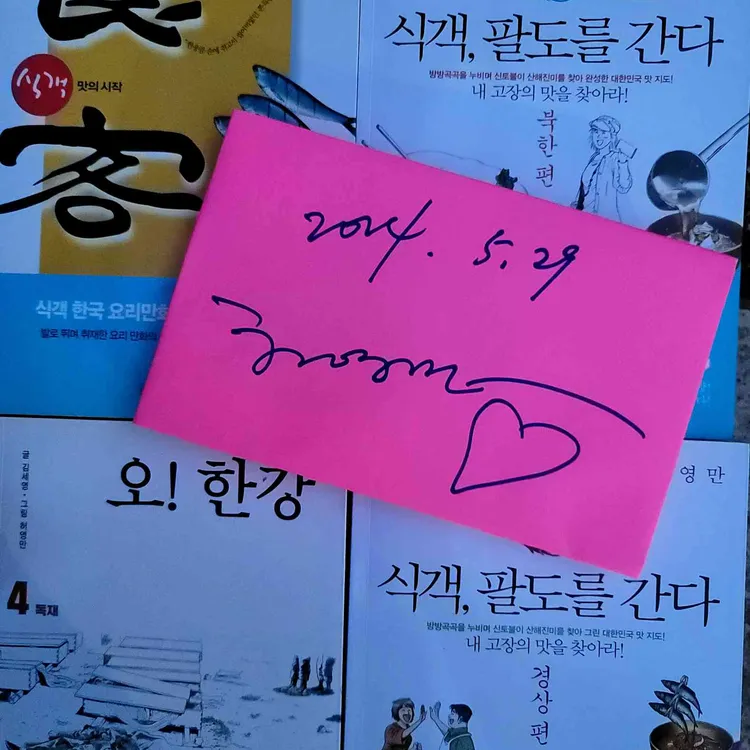 食
식객
맛의 시작
客
식객 한국 요리만화
발로 뛰며 취재한 요리 만화의
식객, 팔도를 간다
방방곡곡을 누비며 신토불이 산해진미를 찾아 완성한 대한민국 맛 지도!
내 고장의 맛을 찾아라!
북한편
2024. 5. 29
오! 한강
글 김세영 · 그림 허영만
4 독재
영만
식객, 팔도를 간다
방방곡곡을 누비며 신토불이 산해진미를 찾아 그린 대한민국 맛 지도!
내 고장의 맛을 찾아라!
경상편